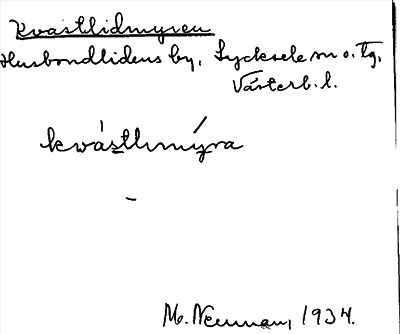 Kvastlidmyren
Husbondlidens by, Lycksele sn o. tg,
Västerb. l.
kwástlımýra
-
M. Neuman, 1934.